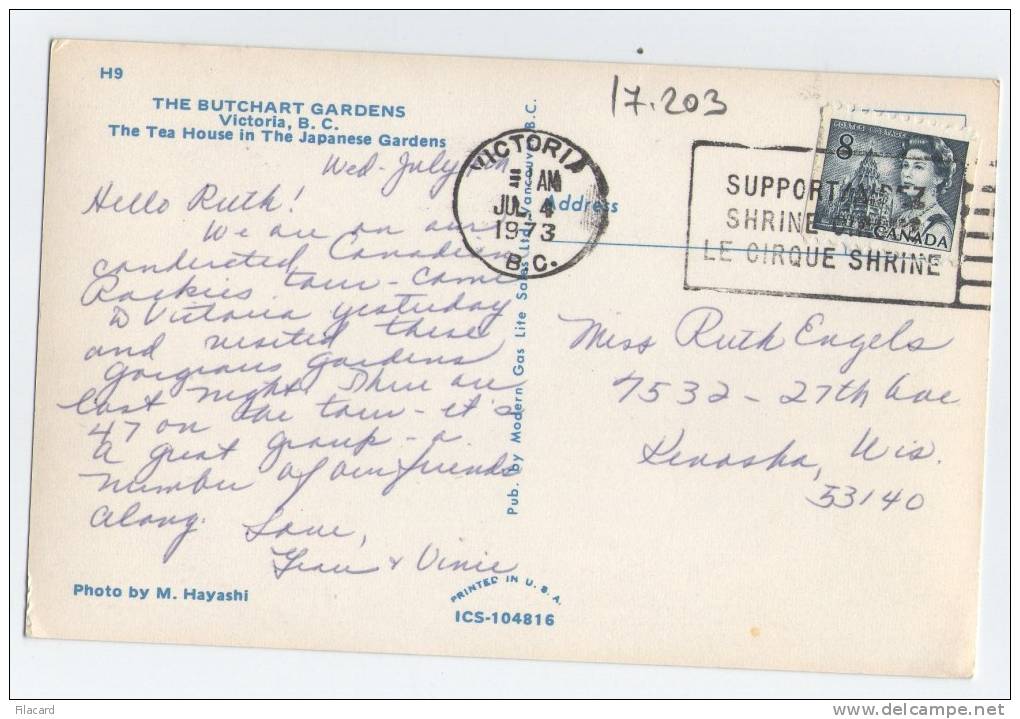 H9
THE BUTCHART GARDENS
Victoria, B. C.
The Tea House in The Japanese Gardens
Wed-July
Hello Ruth!
We are on our
conducted Canadian
Rockies tour - came
to Victoria yesterday
and visited these
gorgeous gardens
last night. There are
47 on the tour - it's
a great group - a
number of our friends
along. Love,
& Vinie
Photo by M. Hayashi
Pub. by Modern Gas Lite Sales Ltd., Vancouver, B.C.
PRINTED IN U. S. A.
ICS-104816
17.203
VICTORIA
AM
JUL 4
1973
B.C.
Address
SUPPORT
SHRINE
LE CIRQUE SHRINE
POSTES POSTAGE
8
CANADA
Miss Ruth Engels
7532 - 27th Ave
Kenosha, Wis.
53140
Filacard
www.delcampe.net